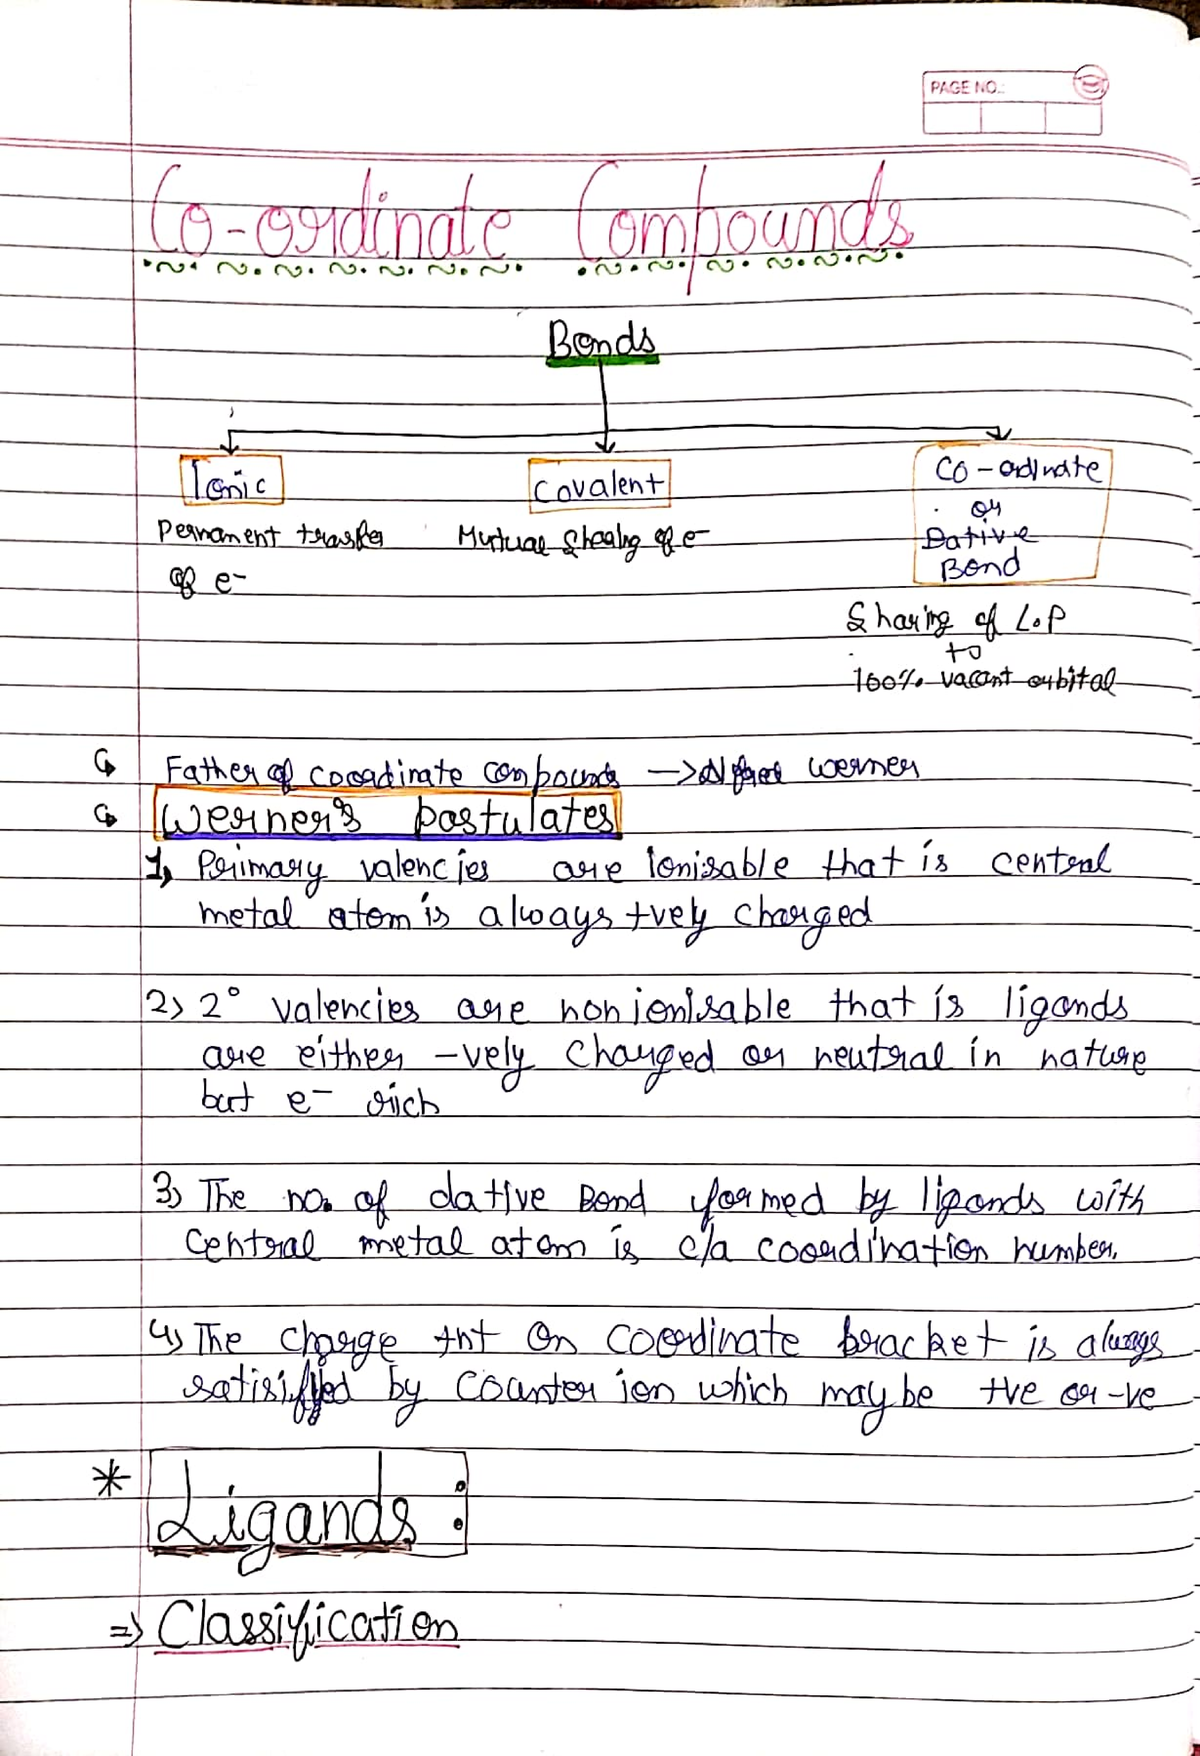 PAGE NO.:
Co-ordinate Compounds
Bonds
Ionic
Covalent
Co-ordinate
or
Dative
Bond
Permanent transfer
of e-
Mutual Sharing of e-
Sharing of L.P
to
100% vacant orbital
Father of coordinate compounds → Alfred werner
Werner's postulates
1, Primary valencies are Ionisable that is central
metal atom is always +vely charged
2) 2° valencies are non ionisable that is ligands
are either -vely charged or neutral in nature
but e- rich
3) The no. of dative Bond formed by ligands with
Central metal atom is c/a coordination number.
4) The charge tht on coordinate bracket is always
satisified by counter ion which may be +ve or -ve
* Ligands :
⇒ Classification